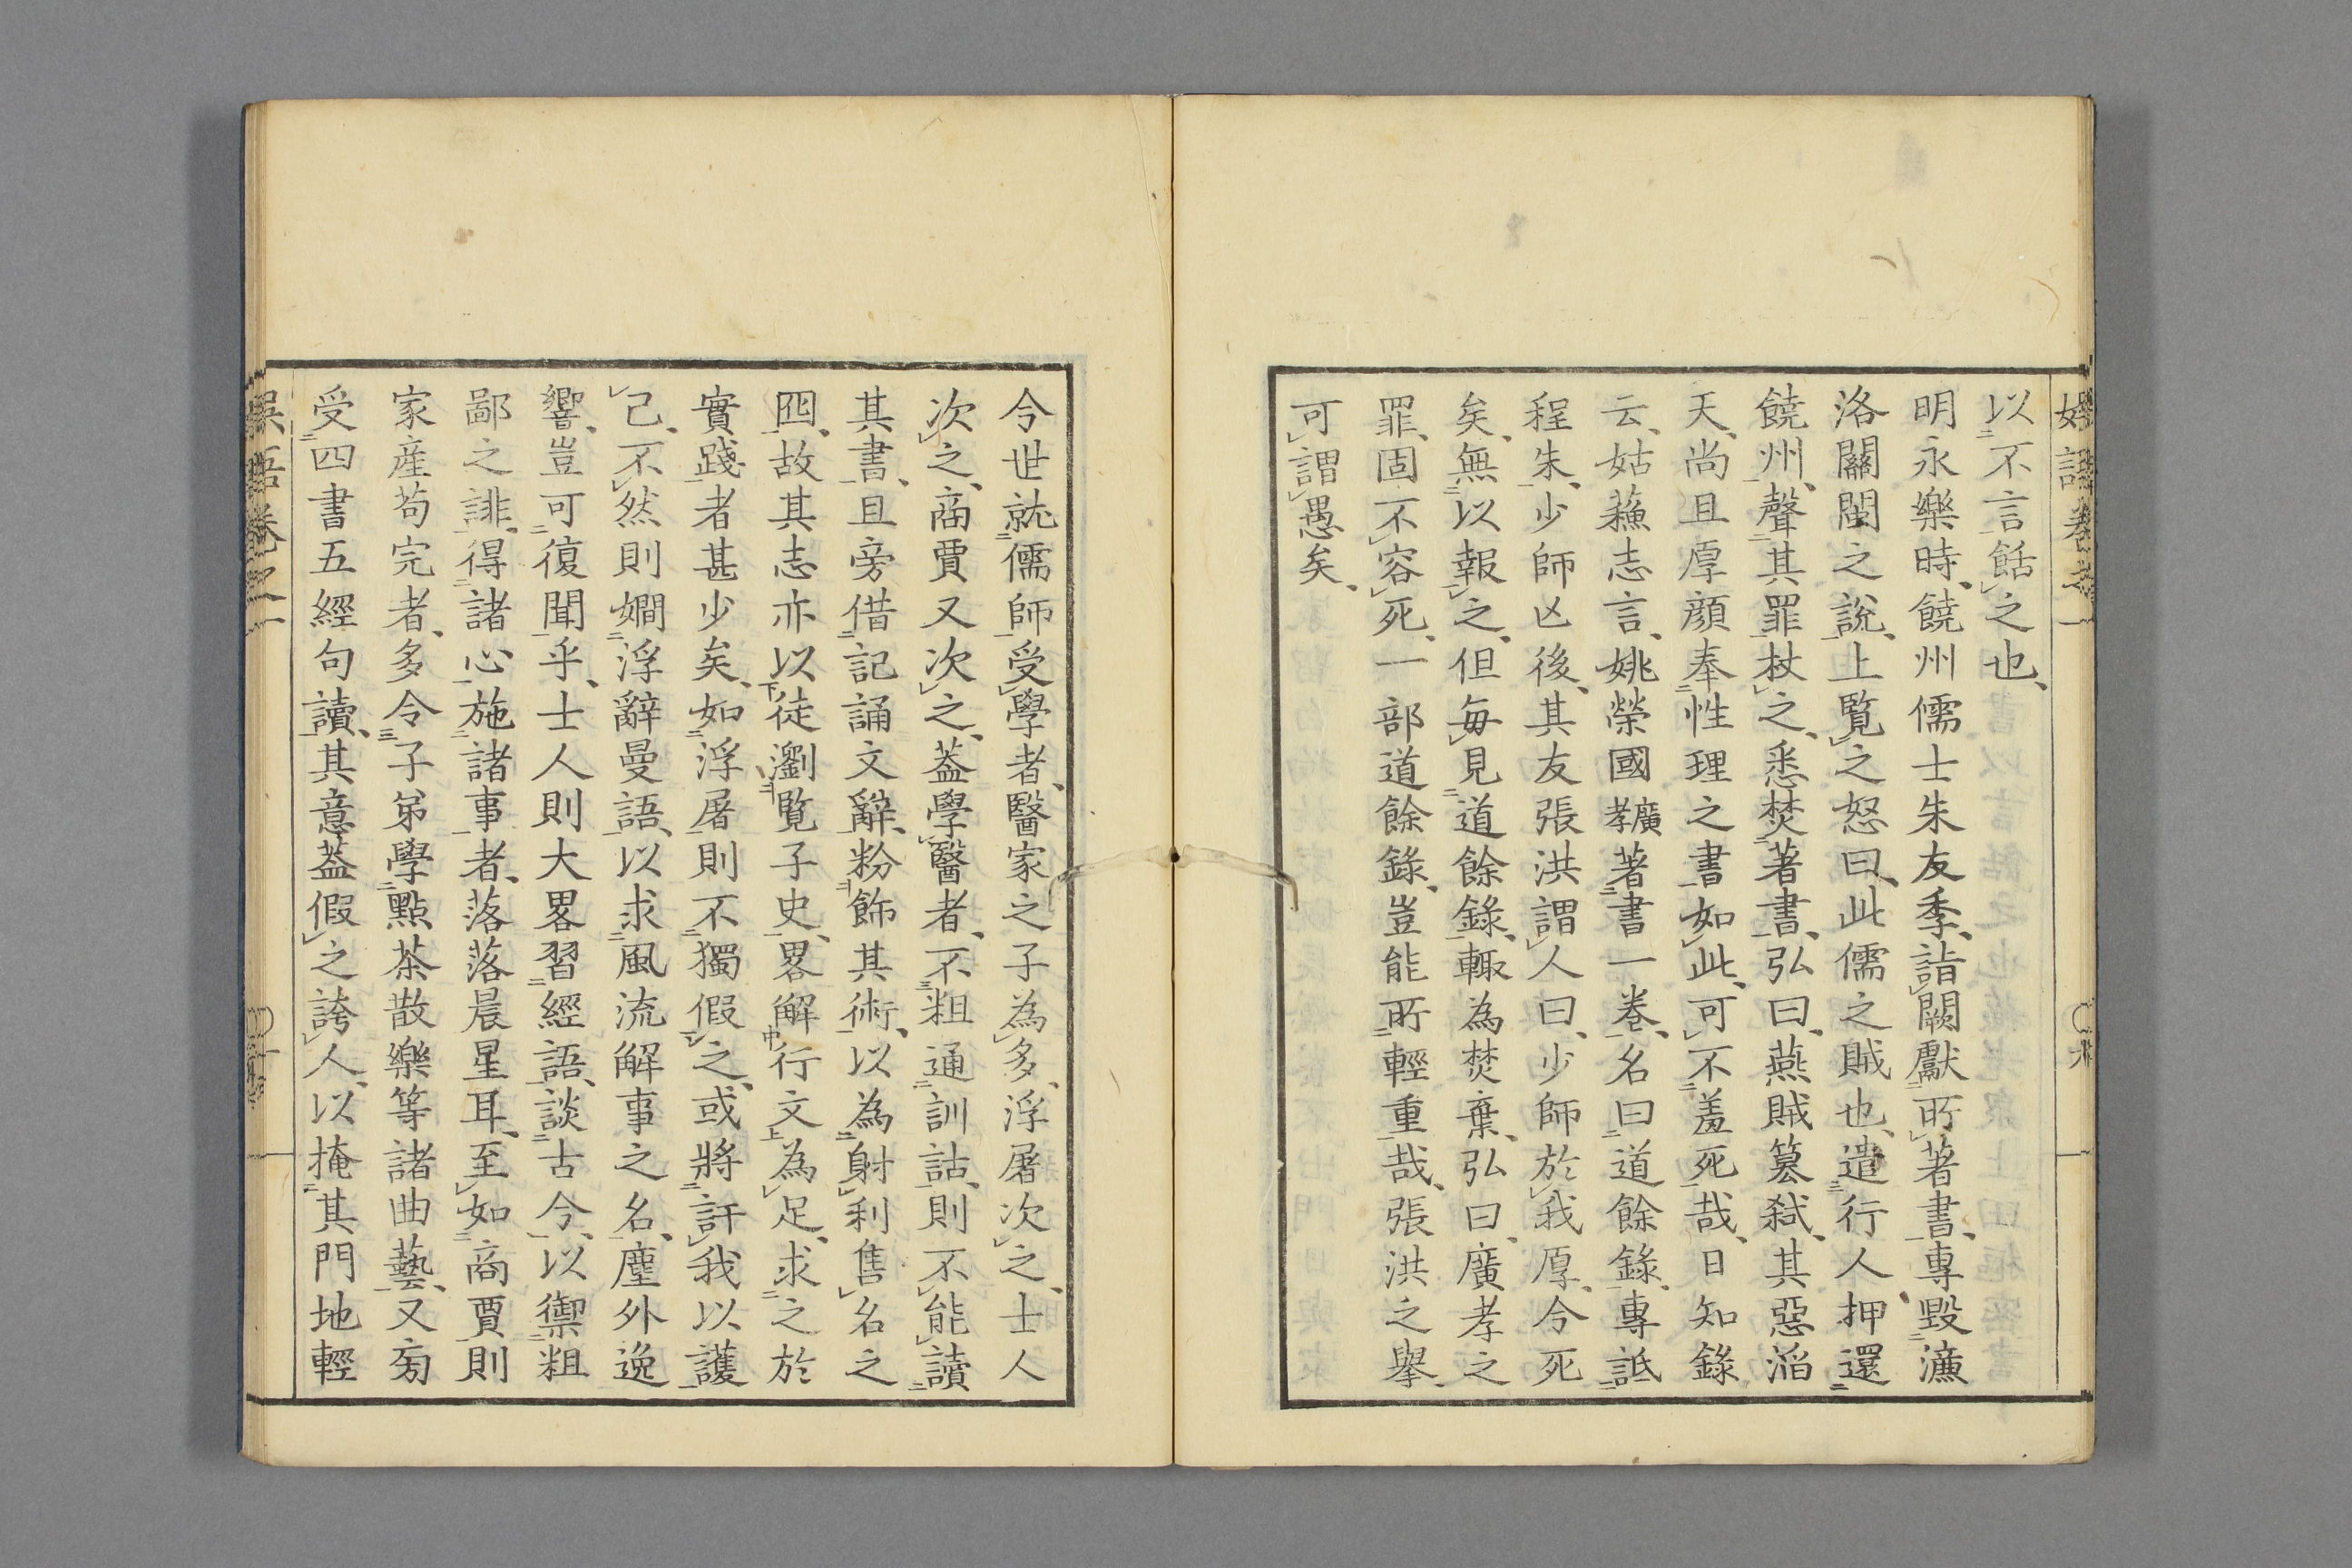 以不言餂之也、
明永樂時、饒州儒士朱友季、詣闕獻所著書、專毀濂
洛關閩之說、上覽之怒曰、此儒之賊也、遣行人押還
饒州、聲其罪杖之、悉焚著書、弘曰、燕賊簒弑、其惡滔
天、尚且厚顔奉性理之書如此、可不羞死哉、日知錄
云、姑蘓志言、姚榮國廣孝著書一卷、名曰道餘錄、專詆
程朱、少師亡後、其友張洪謂人曰、少師於我厚、今死
矣、無以報之、但每見道餘錄、輙為焚棄、弘曰、廣孝之
罪、固不容死、一部道餘錄、豈能所輕重哉、張洪之舉、
可謂愚矣、
今世就儒師受學者、醫家之子為多、浮屠次之、士人
次之、商賈又次之、蓋學醫者、不粗通訓詁、則不能讀
其書、且旁借記誦文辭、粉飾其術、以為射利售名之
囮、故其志亦以徒瀏覧子史、畧解行文為足、求之於
實踐者甚少矣、如浮屠則不獨假之、或將訐我以護
己、不然則嫺浮辭曼語、以求風流解事之名、塵外逸
響、豈可復聞乎、士人則大畧習經語、談古今、以禦粗
鄙之誹、得諸心、施諸事者、落落晨星耳、至如商賈則
家産苟完者、多令子弟學點茶散樂等諸曲藝、又旁
受四書五經句讀、其意蓋假之誇人、以掩其門地輕